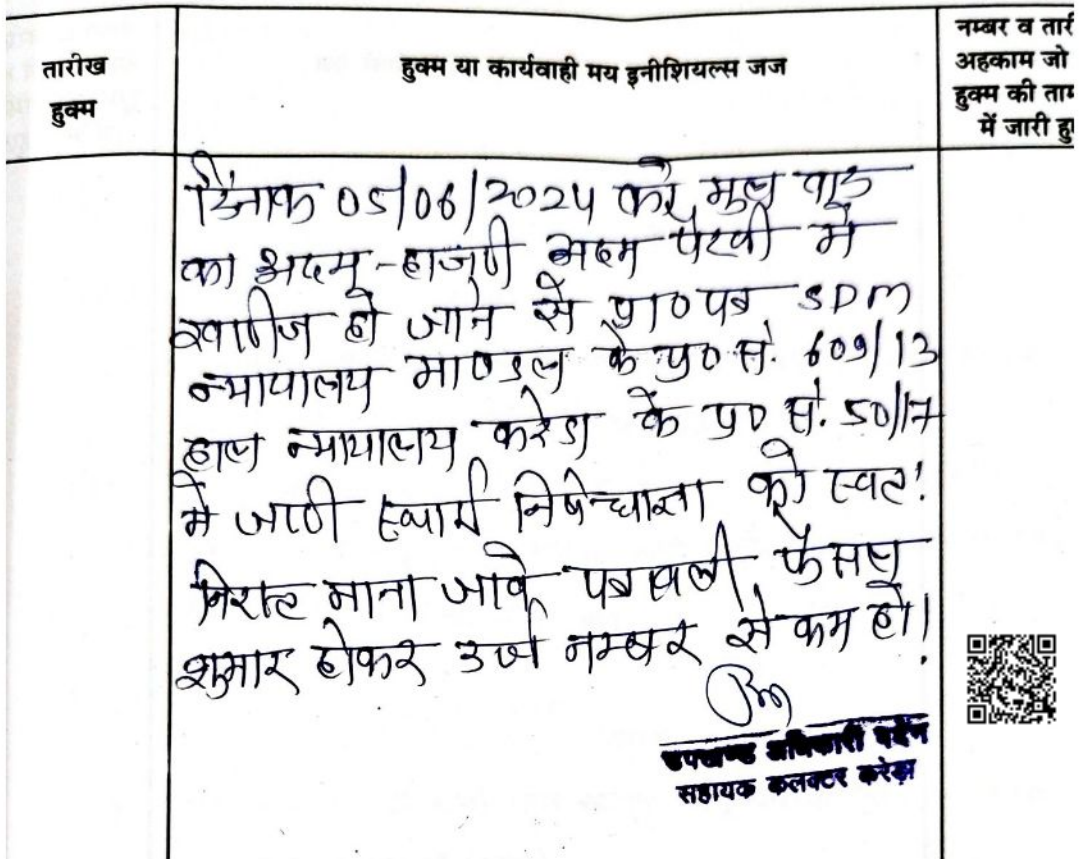 तारीख
हुक्म
हुक्म या कार्यवाही मय इनीशियल्स जज
नम्बर व तारी
अहकाम जो
हुक्म की ताम
में जारी हु
दिनांक 05/06/2024 को मुल वाद
का अदम-हाजरी अदम पैरवी में
खारीज हो जाने से प्रा०पत्र SDM
न्यायालय माण्डल के प्र०सं. 609/13
हाल न्यायालय करेडा के प्र०सं. 50/17
में जारी स्थाई निषेधाज्ञा को स्वत:
निरस्त माना जावे पत्रावली फैसल
शुमार होकर दर्ज नम्बर से कम हो।
उपखण्ड अधिकारी पदेन
सहायक कलक्टर करेड़ा